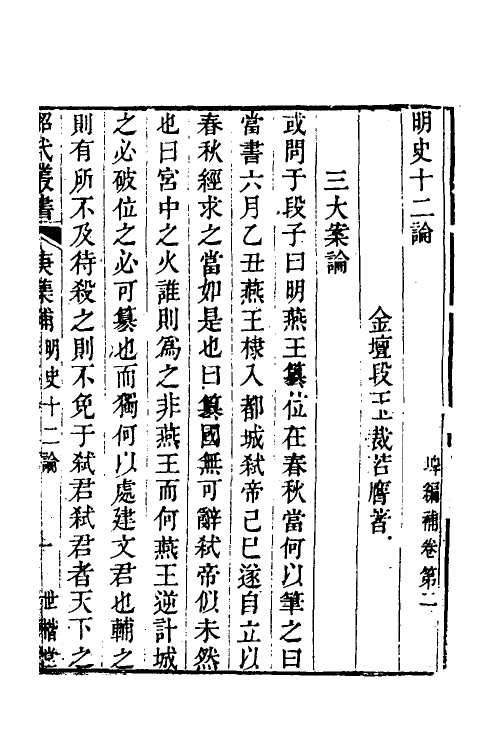 明史十二論
埤編補卷第二
金壇段玉裁若膺著
三大案論
或問于段子曰明燕王纂位在春秋當何以筆之曰
當書六月乙丑燕王棣入都城弒帝己巳遂自立以
春秋經求之當如是也曰纂國無可辭弒帝似未然
也曰宮中之火誰則爲之非燕王而何燕王逆計城
之必破位之必可纂也而獨何以處建文君也輔之
則有所不及待殺之則不免于弒君弒君者天下之
昭代叢書 庚集補 明史十二論 一 世楷堂